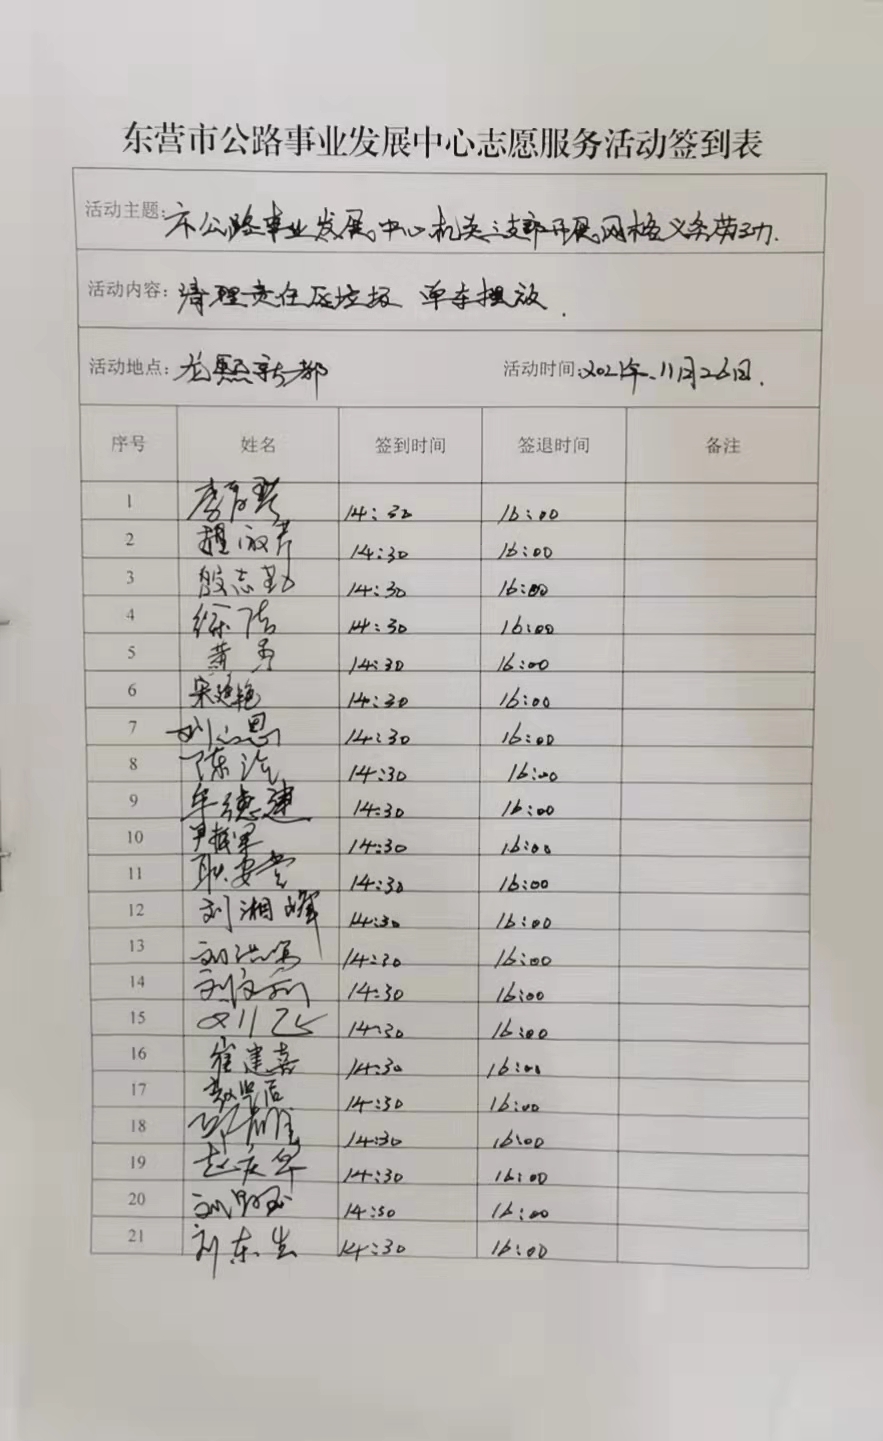 东营市公路事业发展中心志愿服务活动签到表
活动主题: 市公路事业发展中心机关三支部开展网格义务劳动.
活动内容: 清理责任区垃圾 单车摆放.
活动地点: 龙熙新都 活动时间: 2021年.11月26日.
序号 姓名 签到时间 签退时间 备注
1 14:30 16:00
2 14:30 16:00
3 殷志勤 14:30 16:00
4 徐洁 14:30 16:00
5 黄勇 14:30 16:00
6 宋延艳 14:30 16:00
7 14:30 16:00
8 陈 14:30 16:00
9 牟德建 14:30 16:00
10 尹 14:30 16:00
11 耿安营 14:30 16:00
12 刘湘峰 14:30 16:00
13 刘洪 14:30 16:00
14 刘文利 14:30 16:00
15 14:30 16:00
16 崔建嘉 14:30 16:00
17 14:30 16:00
18 14:30 16:00
19 赵庆华 14:30 16:00
20 14:30 16:00
21 刘东生 14:30 16:00